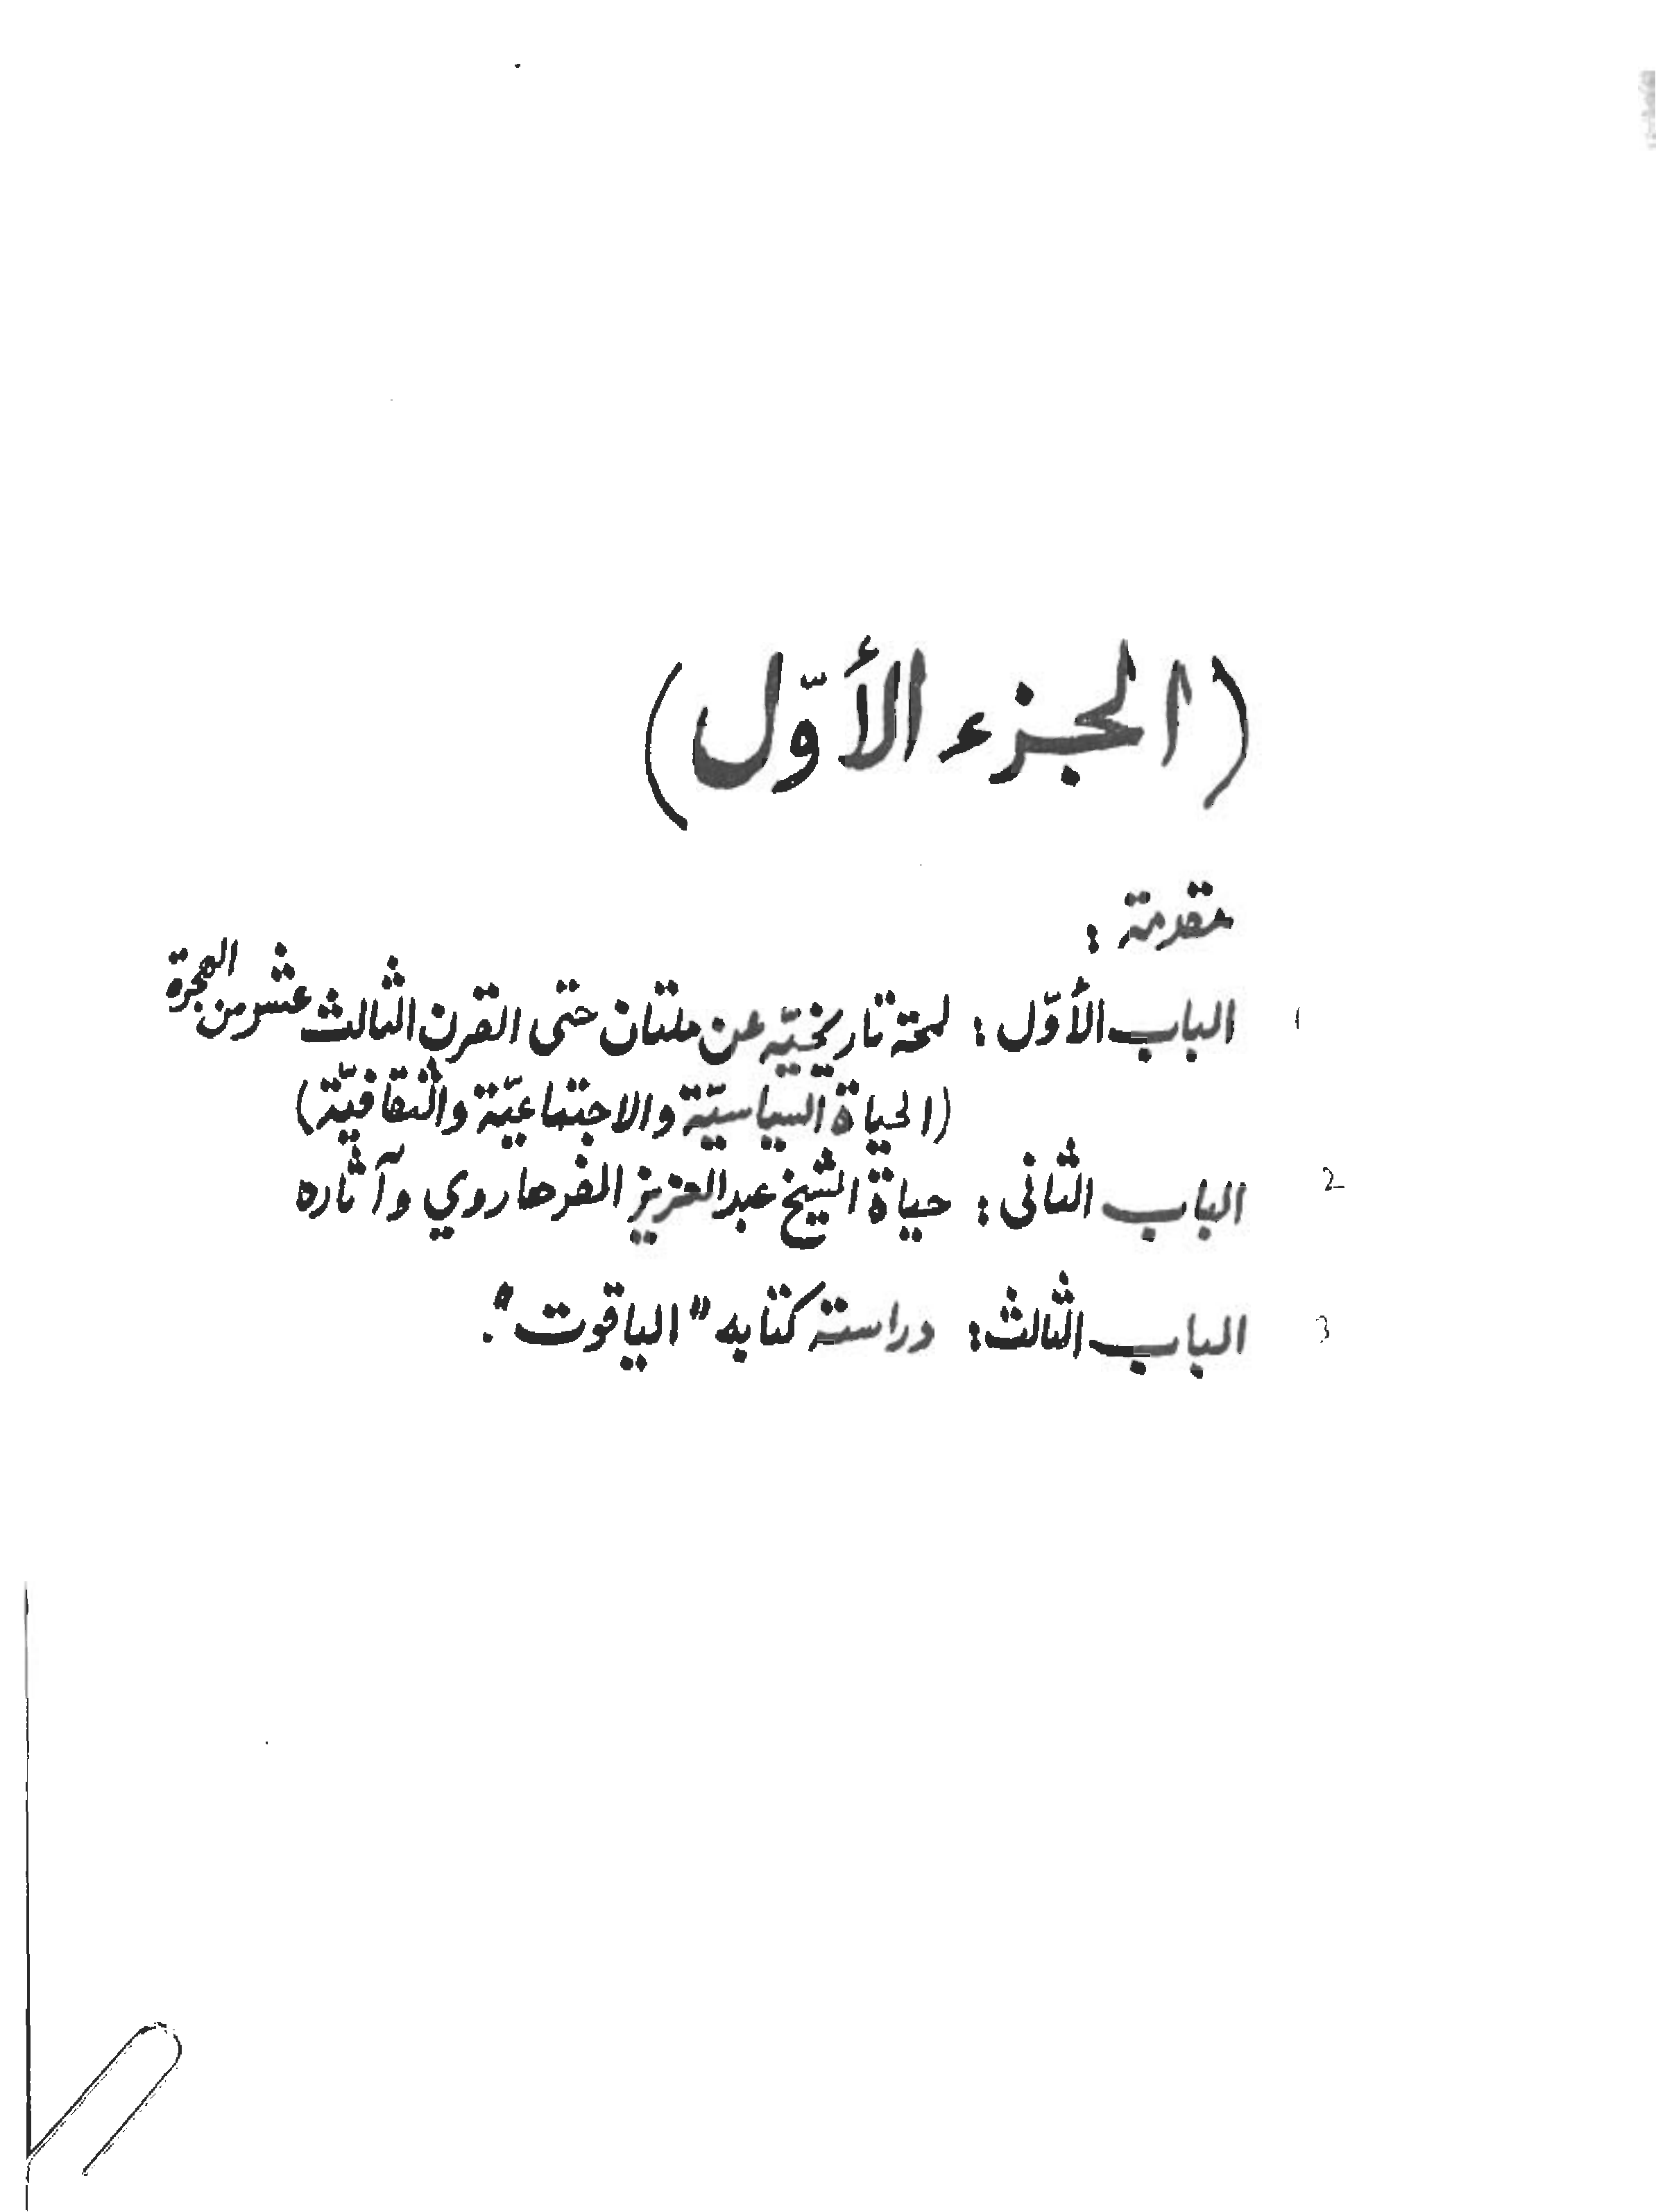 (الجزء الأوّل)
مقدمة :
1 الباب الأوّل : لمحة تاريخيّه عن ملتان حتى القرن الثالث عشر من الهجرة
(الحياة السياسيّة والاجتماعيّة والثقافيّة)
2 الباب الثانى : حياة الشيخ عبدالعزيز الفرهاروي وآثاره
3 الباب الثالث : دراسة كتابه "الياقوت".